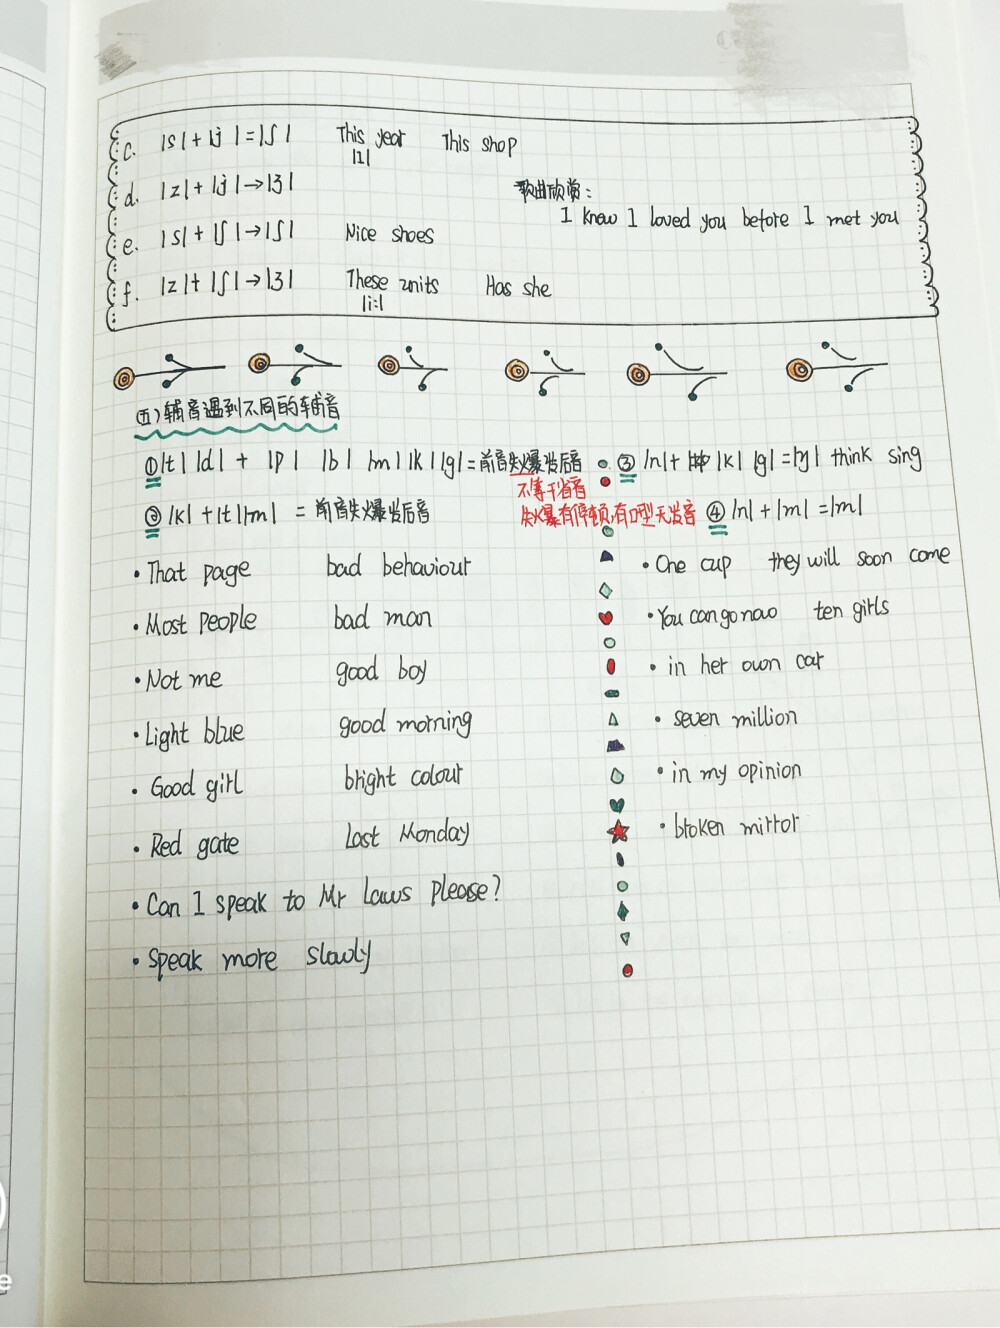 c. |s|+|j|=|ʃ| This year This shop
|ɪ|
d. |z|+|j|→|ʒ|
歌曲欣赏:
I knew I loved you before I met you
e. |s|+|ʃ|→|ʃ| Nice shoes
f. |z|+|ʃ|→|ʒ| These units Has she
|i:|
(五)辅音遇到不同的辅音
①|t| |d| + |p| |b| |m| |k| |g| = 前音失爆发后音
不等于省音
失爆有停顿,有口型无发音
②|k| + |t| |m| = 前音失爆发后音
③|n|+ |k| |g| = |ŋ| think sing
④|n| + |m| = |m|
• That page bad behaviour
• Most people bad man
• Not me good boy
• Light blue good morning
• Good girl bright colour
• Red gate Last Monday
• Can I speak to Mr Laws please?
• Speak more slowly
• One cup they will soon come
• You can go now ten girls
• in her own car
• seven million
• in my opinion
• broken mirror